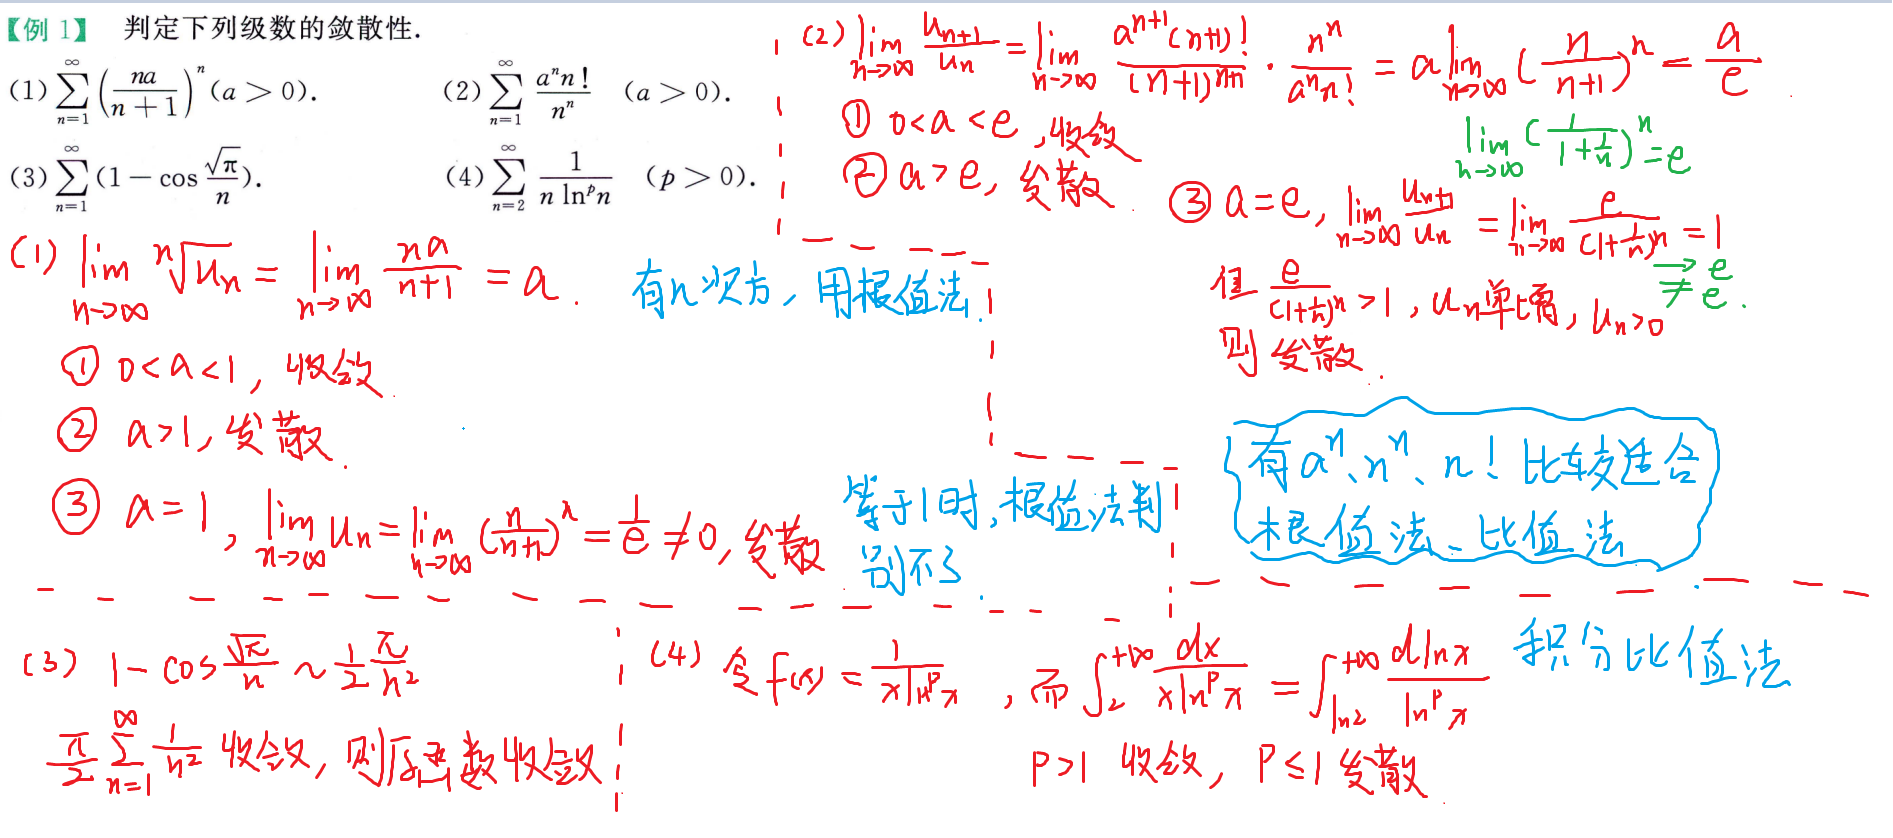 【例 1】 判定下列级数的敛散性.
(1) \sum_{n=1}^{∞} (\frac{na}{n+1})^n (a > 0). (2) \sum_{n=1}^{∞} \frac{a^n n!}{n^n} (a > 0).
(3) \sum_{n=1}^{∞} (1 - cos \frac{\sqrt{π}}{n}). (4) \sum_{n=2}^{∞} \frac{1}{n ln^p n} (p > 0).
(1) \lim_{n→∞} \sqrt[n]{u_n} = \lim_{n→∞} \frac{na}{n+1} = a. 有n次方,用根值法.
① 0<a<1, 收敛.
② a>1, 发散.
③ a=1, \lim_{n→∞} u_n = \lim_{n→∞} (\frac{n}{n+1})^n = \frac{1}{e} ≠ 0, 发散
等于1时,根值法判
别不了.
(2) \lim_{n→∞} \frac{u_{n+1}}{u_n} = \lim_{n→∞} \frac{a^{n+1}(n+1)!}{(n+1)^{n+1}} · \frac{n^n}{a^n n!} = a \lim_{n→∞} (\frac{n}{n+1})^n = \frac{a}{e}
\lim_{n→∞} (\frac{1}{1+\frac{1}{n}})^n = e
① 0<a<e, 收敛
② a>e, 发散.
③ a=e, \lim_{n→∞} \frac{u_{n+1}}{u_n} = \lim_{n→∞} \frac{e}{(1+\frac{1}{n})^n} = 1
→ e
≠ e.
但 \frac{e}{(1+\frac{1}{n})^n} > 1, u_n单增, u_n>0
则发散.
有a^n、n^n、n! 比较适合
根值法、比值法
(3) 1-cos \frac{\sqrt{π}}{n} ~ \frac{1}{2} \frac{π}{n^2}
\frac{π}{2} \sum_{n=1}^{∞} \frac{1}{n^2} 收敛, 则原级数收敛
(4) 令f(x) = \frac{1}{x ln^p x}, 而 \int_2^{+∞} \frac{dx}{x ln^p x} = \int_{ln2}^{+∞} \frac{dlnx}{ln^p x} 积分比值法
P>1 收敛, P≤1 发散